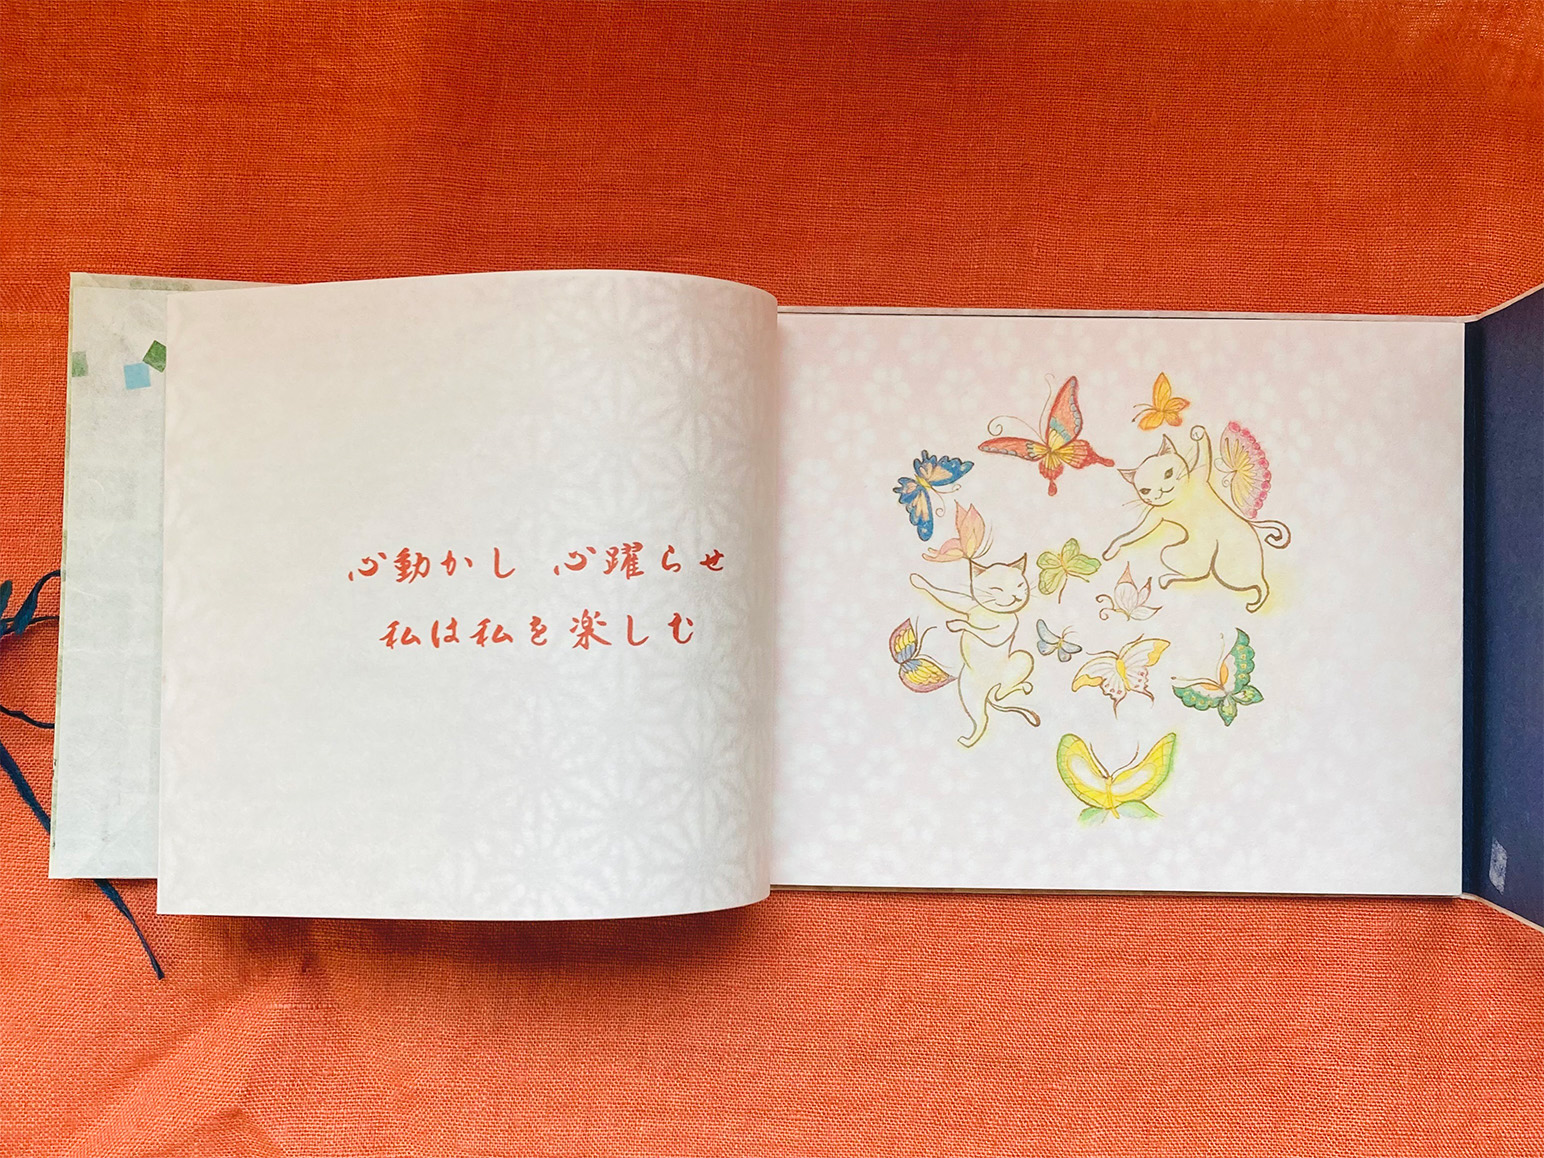 心動かし 心躍らせ
私は私を楽しむ